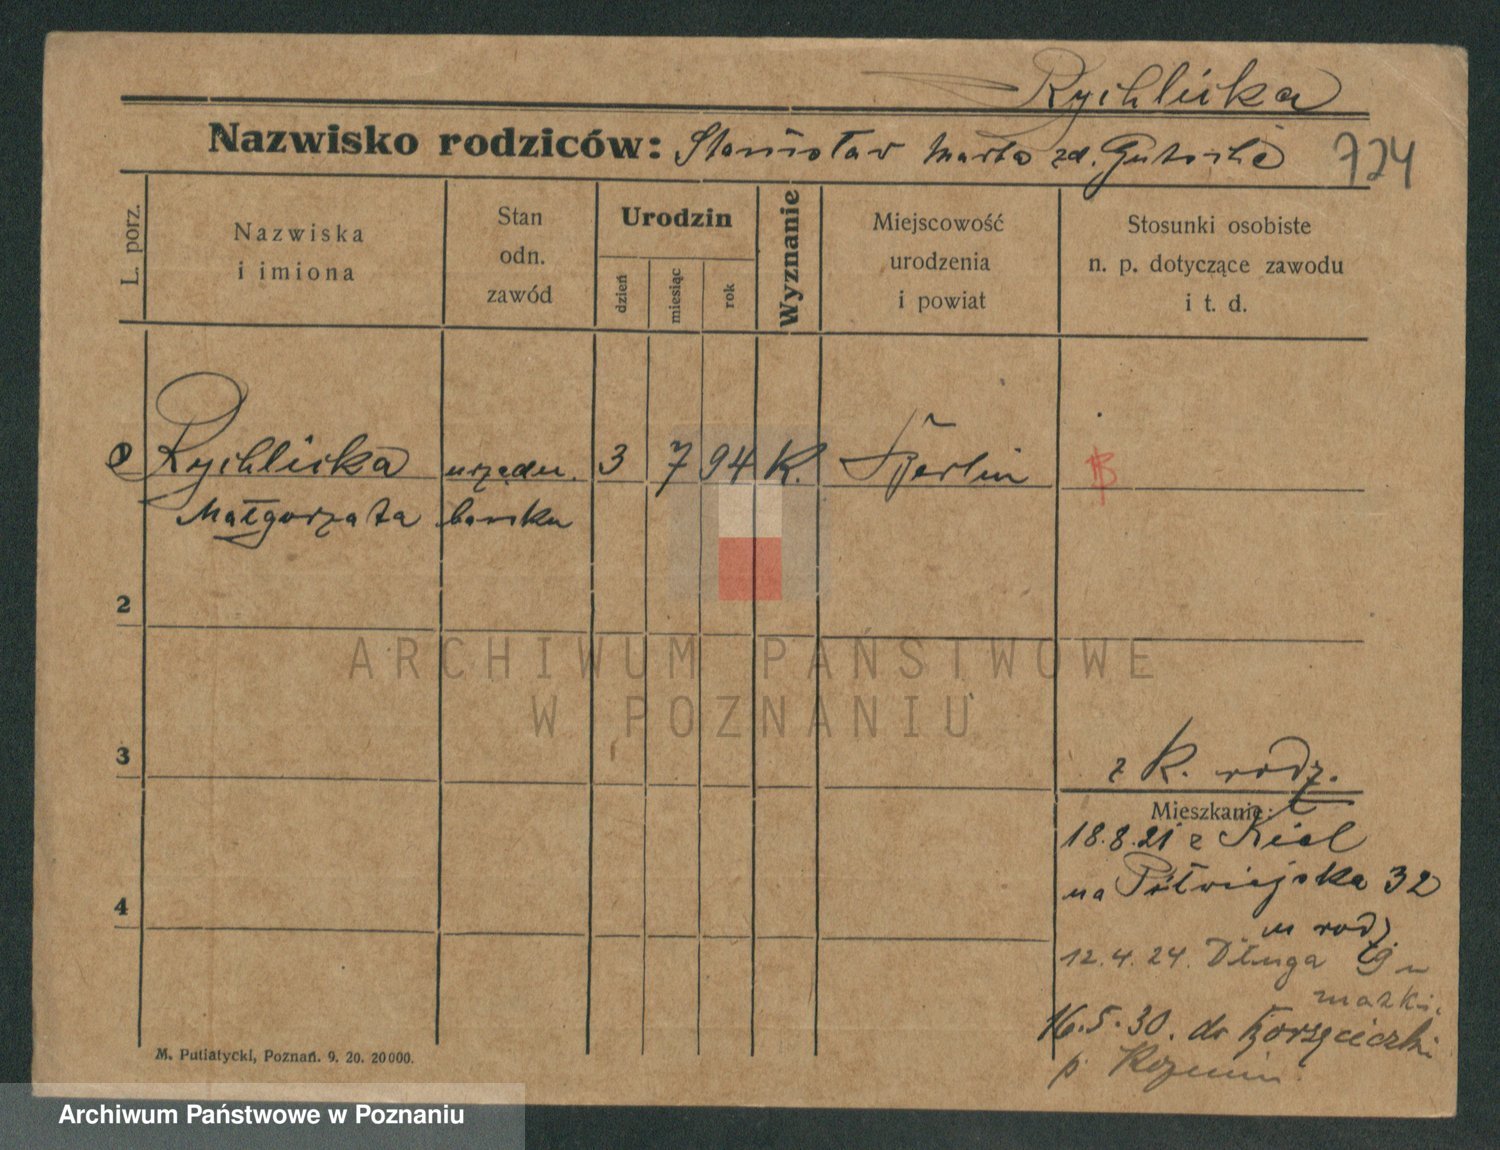 Rychlicka
Nazwisko rodziców: Stanisław Marta zd.
724
L. porz.
Nazwiska
i imiona
Stan
odn.
zawód
Urodzin
dzień
miesiąc
rok
Wyznanie
Miejscowość
urodzenia
i powiat
Stosunki osobiste
n. p. dotyczące zawodu
i t. d.
Rychlicka urzędn. 3 7 94 K. Berlin
Małgorzata banku
2
3
4
z K. rodz.
Mieszkanie:
18.8.21 z Kiel
na Półwiejska 32
u rodz.
12.4.24. Długa 9 u
matki.
16.5.30. do
p
M. Putiatycki, Poznań. 9. 20. 20000.
ARCHIWUM PAŃSTWOWE
W POZNANIU
Archiwum Państwowe w Poznaniu